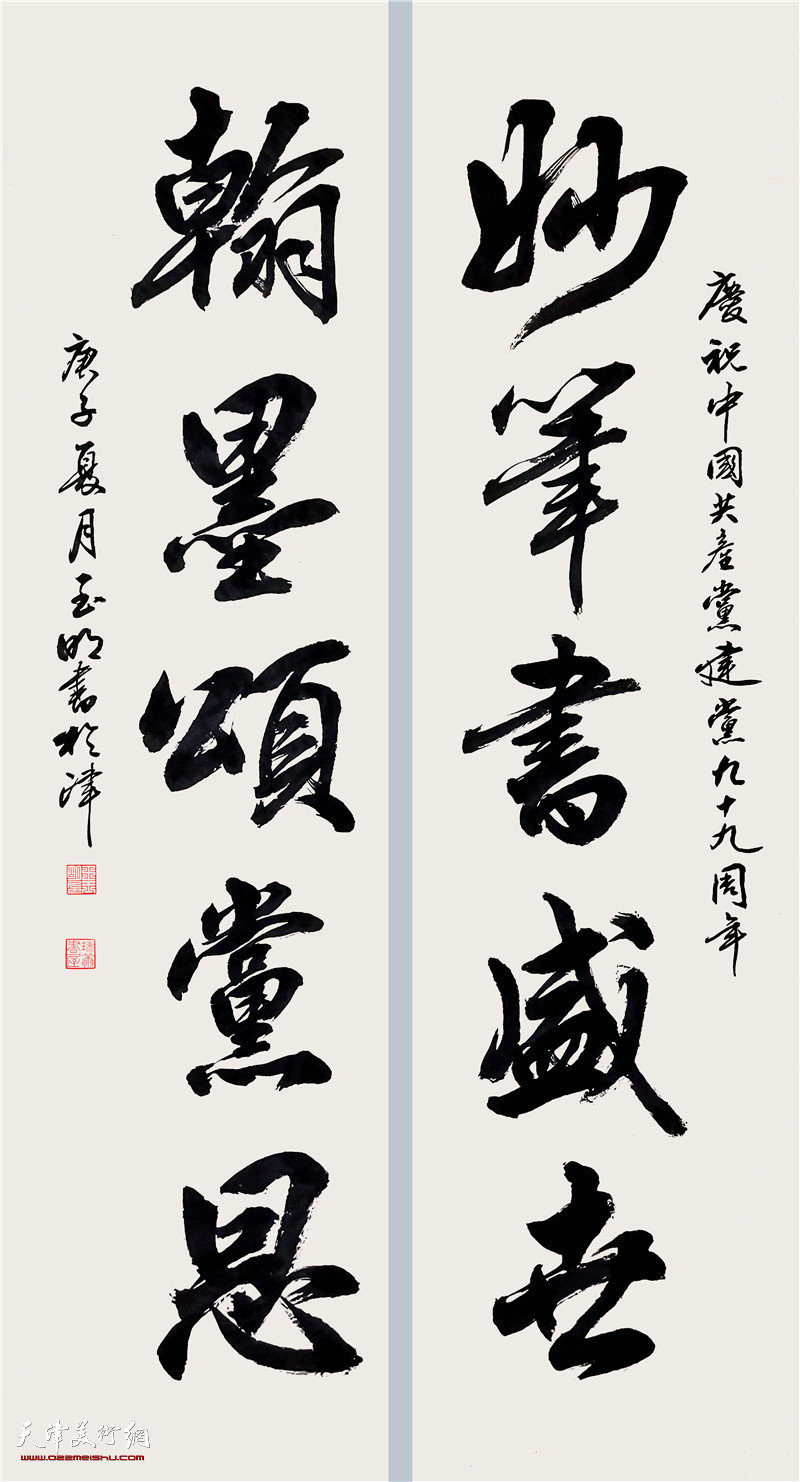 慶祝中國共產黨建黨九十九周年
妙筆書盛世
翰墨頌黨恩
庚子夏月玉明書於津
天津美術網
www.022meishu.com